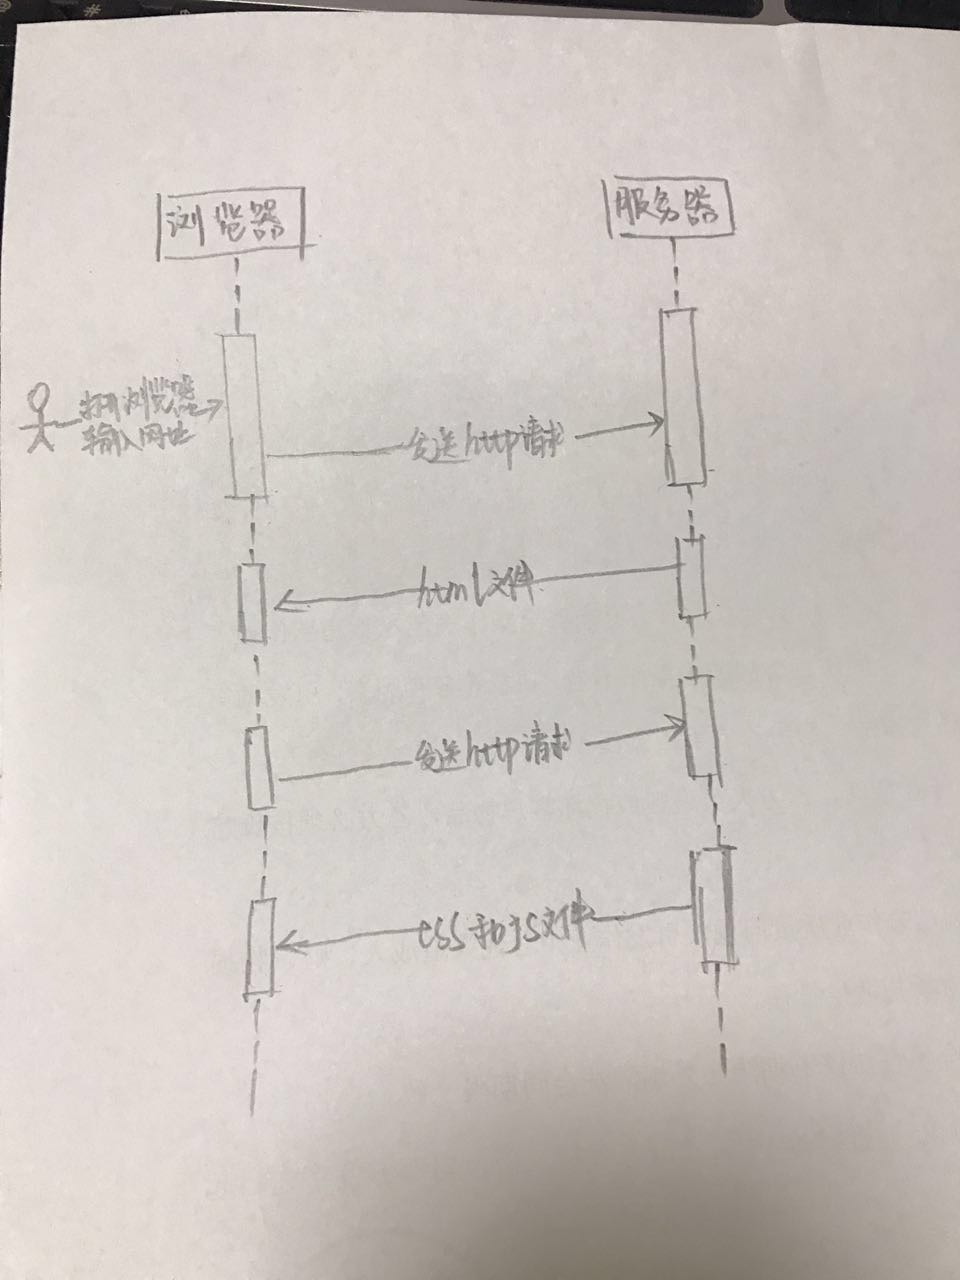 浏览器
服务器
打开浏览器
输入网址
发送http请求
html文件
发送http请求
css和js文件